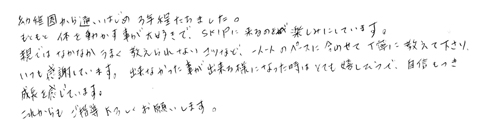 幼稚園から通いはじめ3年経ちました。
もともと体を動かす事が大好きで、SKIPに来るのが楽しみにしています。
親ではなかなかうまく教えられないコツなど、一人一人のペースに合わせて丁寧に教えて下さり、
いつも感謝しています。出来なかった事が出来る様になった時はとても嬉しそうで、自信もつき
成長を感じています。
これからもご指導よろしくお願いします。